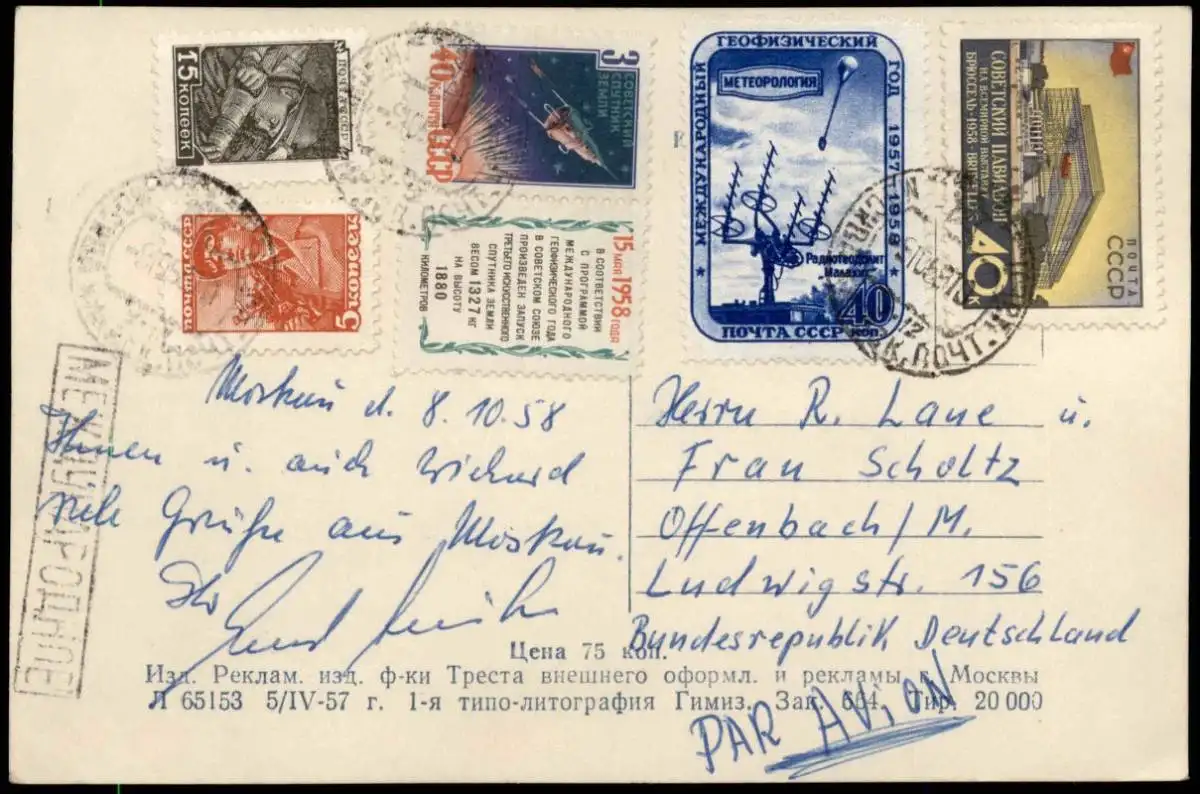 15 копеек
почта ссср
3 СОВЕТСКИЙ СПУТНИК ЗЕМЛИ
40 К. ПОЧТА СССР
МЕЖДУНАРОДНЫЙ ГЕОФИЗИЧЕСКИЙ ГОД 1957-1958
МЕТЕОРОЛОГИЯ
Радиотеодолит
"Малахит"
40 коп.
ПОЧТА СССР
СОВЕТСКИЙ ПАВИЛЬОН
НА ВСЕМИРНОЙ ВЫСТАВКЕ
БРЮССЕЛЬ-1958-BRUXELLES
40 к
ПОЧТА
СССР
почта ссср
5 копеек
15 МАЯ 1958 ГОДА
В СООТВЕТСТВИИ
С ПРОГРАММОЙ
МЕЖДУНАРОДНОГО
ГЕОФИЗИЧЕСКОГО ГОДА
В СОВЕТСКОМ СОЮЗЕ
ПРОИЗВЕДЕН ЗАПУСК
ТРЕТЬЕГО ИСКУССТВЕННОГО
СПУТНИКА ЗЕМЛИ
ВЕСОМ 1327 КГ
НА ВЫСОТУ
1880
КИЛОМЕТРОВ
МЕЖДУНАРОДНОЕ
Moskau d. 8.10.58
Ihnen u. auch Wichard
viele Grüße aus Moskau.
Ihr
Herrn R. Laue u.
Frau Scholtz
Offenbach/M.
Ludwigstr. 156
Bundesrepublik Deutschland
Цена 75 коп.
Изд. Реклам. изд. ф-ки Треста внешнего оформл. и рекламы г. Москвы
Л 65153 5/IV-57 г. 1-я типо-литография Гимиз. Зак. 664. Тир. 20 000
PAR AVION